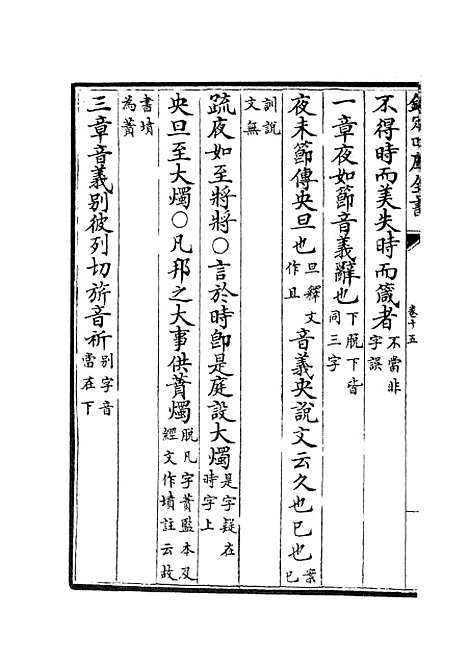 欽定四庫全書
卷十五
不得時而美失時而箴者不當非字誤
一章夜如節音義辭也下脱下皆同三字
夜未節傳央旦也旦釋文作且音義央說文云久也已也案已
訓說文無
疏夜如至將將○言於時卽是庭設大燭是字疑在時字上
央旦至大燭○凡邦之大事供蕡燭脱凡字蕡監本及經文作墳註云故
書墳為蕡
三章音義别彼列切旂音祈别字音當在下